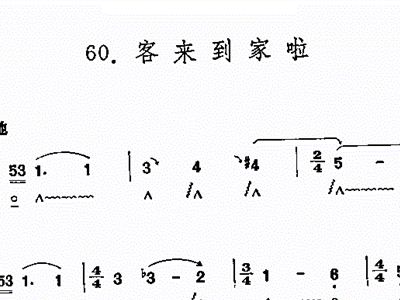 60. 客来到家啦
地
53 1. 1 | 3 4 #4 | 2/4 5 -
53 1. 1 | 4/4 3 b3 - 2 | 3/4 1 - 6 | 4/4 5